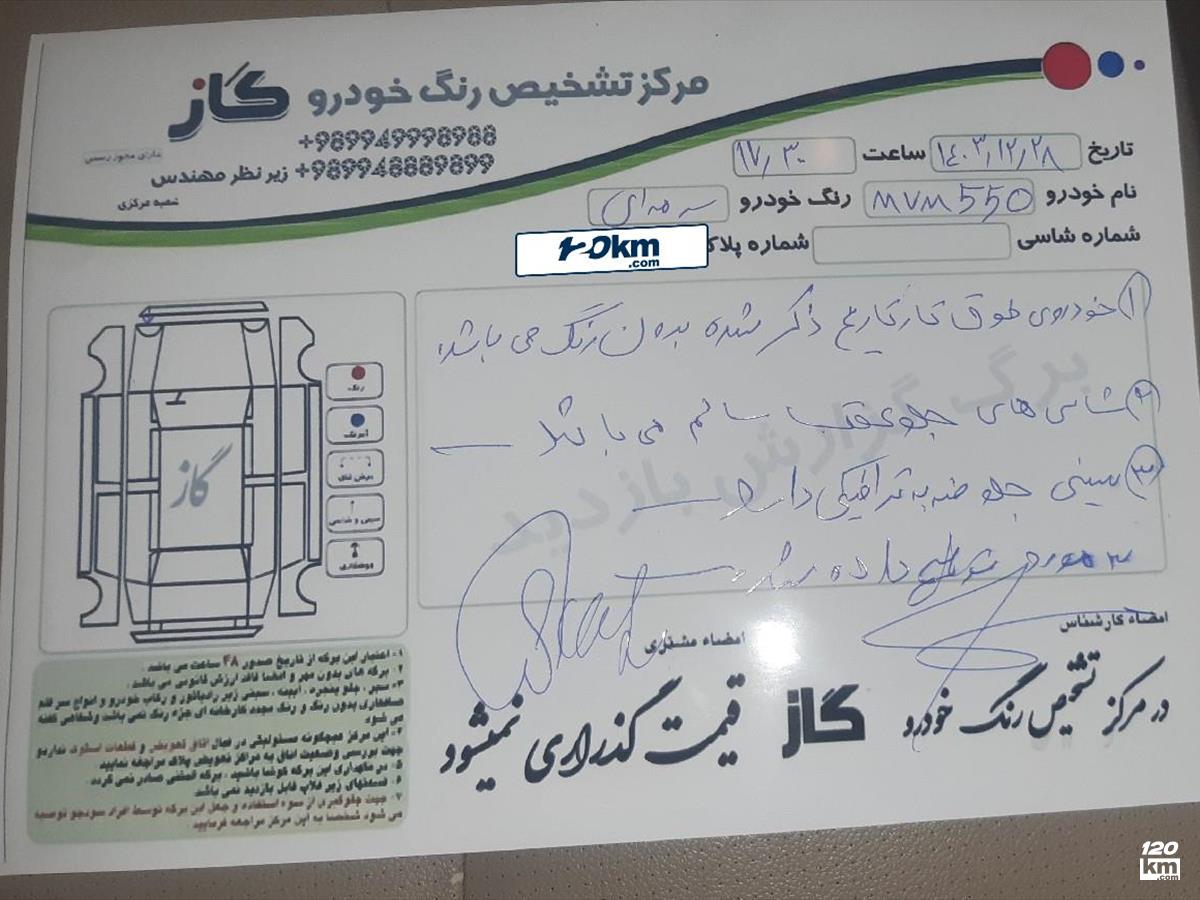 مرکز تشخیص رنگ خودرو گاز
+989949998988
+989948889899 زیر نظر مهندس
دارای مجوز رسمی
شعبه مرکزی
تاریخ ۱۴۰۳/۱۲/۲۸ ساعت ۱۷/۳۰
نام خودرو MVM 550 رنگ خودرو سرمه‌ای
شماره شاسی شماره پلاک
120km
.com
۱ خودروی فوق تا تاریخ ذکر شده بدون رنگ می باشد
۲ شاسی های جلو عقب سالم می باشد
۳ سینی جلو ضربه ترافیکی دارد
۳ مورد توضیح داده شد
برگ گزارش بازدید
گاز
رنگ
آبرنگ
تعویض
سینی و شاسی
صافکاری
امضاء کارشناس
امضاء مشتری
در مرکز تشخیص رنگ خودرو گاز قیمت گذاری نمیشود
۱- اعتبار این برگه از تاریخ صدور ۴۸ ساعت می باشد .
۲- برگه های بدون مهر و امضا فاقد ارزش قانونی می باشد .
۳- سپر ، جلو پنجره ، آیینه ، سینی زیر رادیاتور و رکاب خودرو و انواع سر قلم
صافکاری بدون رنگ و رنگ مجدد کارخانه ای جزء رنگ نمی باشد، وشفاهی گفته
می شود
۴- این مرکز هیچگونه مسئولیتی در قبال اتاق تعویض و قطعات استوک نداریم
جهت بررسی وضعیت اتاق به مراکز تعویض پلاک مراجعه نمایید
۵- در نگهداری این برگه کوشا باشید ، برگه المثنی صادر نمی گردد .
۶- قسمتهای زیر قالپ قابل بازدید نمی باشد .
۷- جهت جلوگیری از سوء استفاده و جعل این برگه توسط افراد سودجو توصیه
می شود شخصا به این مرکز مراجعه فرمایید .
120
km
.com